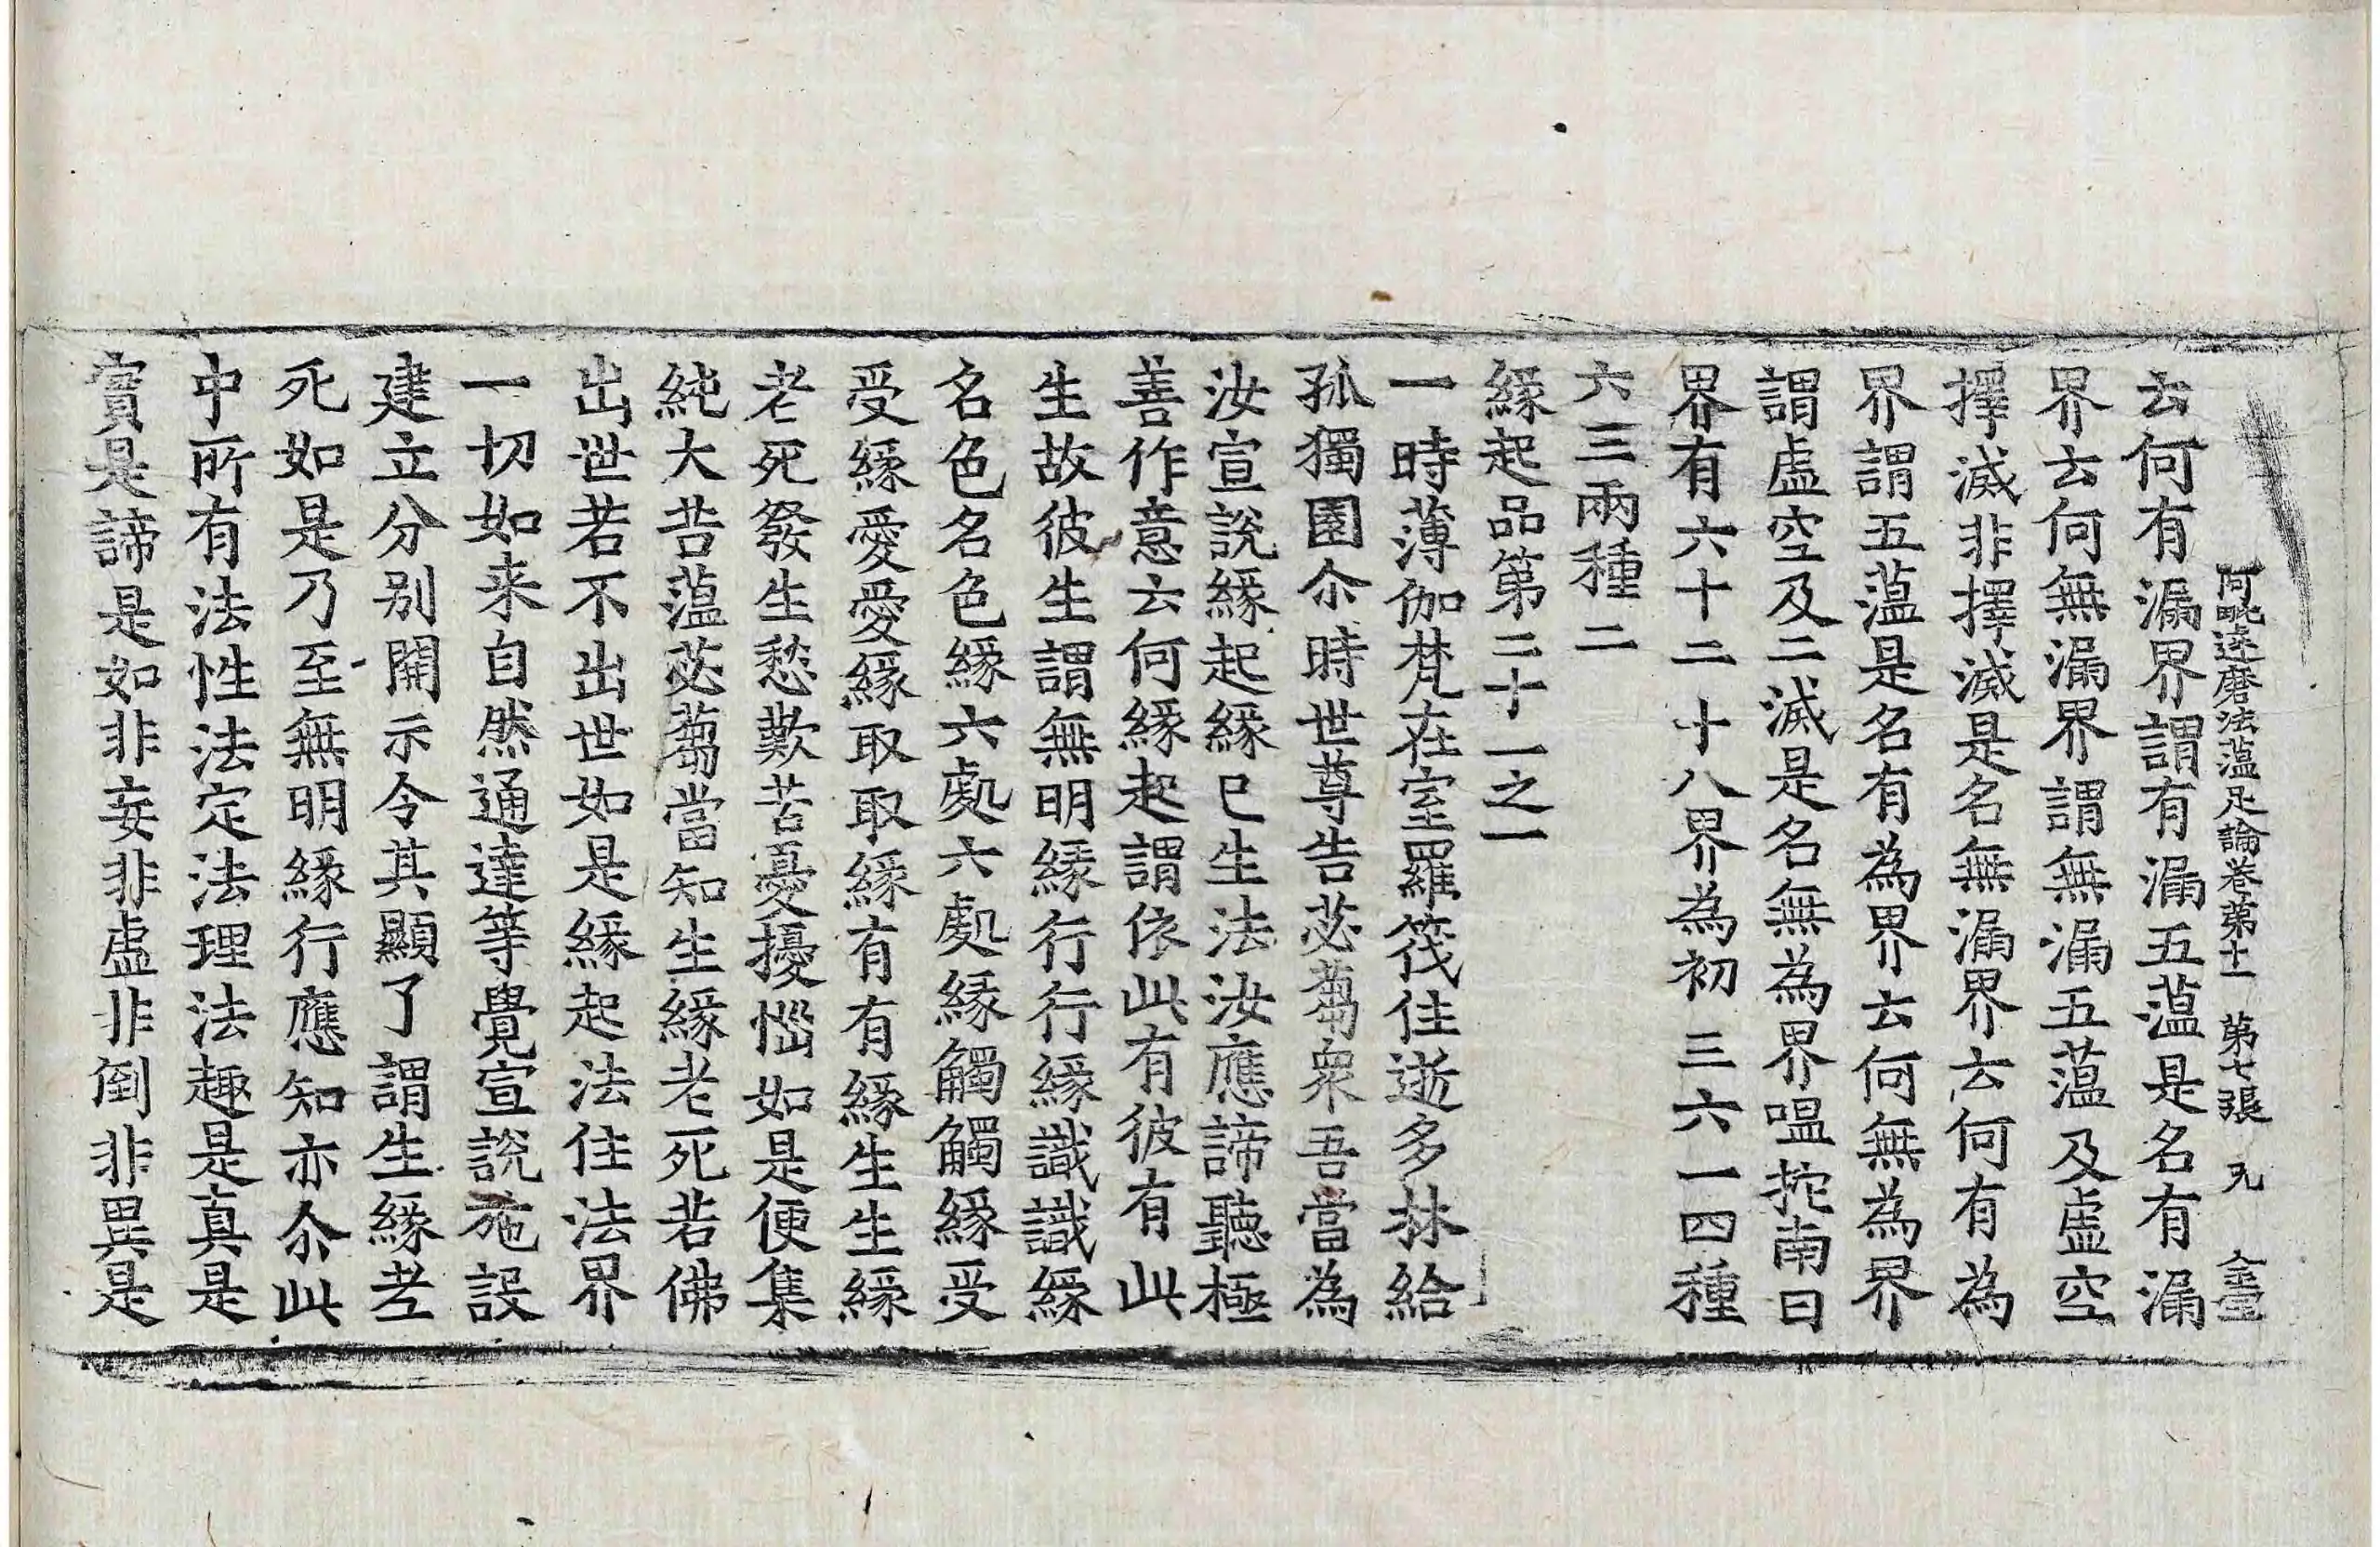 阿毗達磨法蘊足論卷第十一 第七張 完
云何有漏界謂有漏五蘊是名有漏
界云何無漏界謂無漏五蘊及虛空
擇滅非擇滅是名無漏界云何有為
界謂五蘊是名有為界云何無為界
謂虛空及二滅是名無為界嗢拕南曰
界有六十二 十八界為初 三六一四種
六三兩種二
緣起品第二十一之一
一時薄伽梵在室羅筏住逝多林給
孤獨園尒時世尊告苾蒭衆吾當為
汝宣說緣起緣已生法汝應諦聽極
善作意云何緣起謂依此有彼有此
生故彼生謂無明緣行行緣識識緣
名色名色緣六處六處緣觸觸緣受
受緣愛愛緣取取緣有有緣生生緣
老死發生愁歎苦憂擾惱如是便集
純大苦蘊苾蒭當知生緣老死若佛
出世若不出世如是緣起法住法界
一切如来自然通達等覺宣說施設
建立分別開示令其顯了謂生緣老
死如是乃至無明緣行應知亦尒此
中所有法性法定法理法趣是真是
實是諦是如非妄非虛非倒非異是